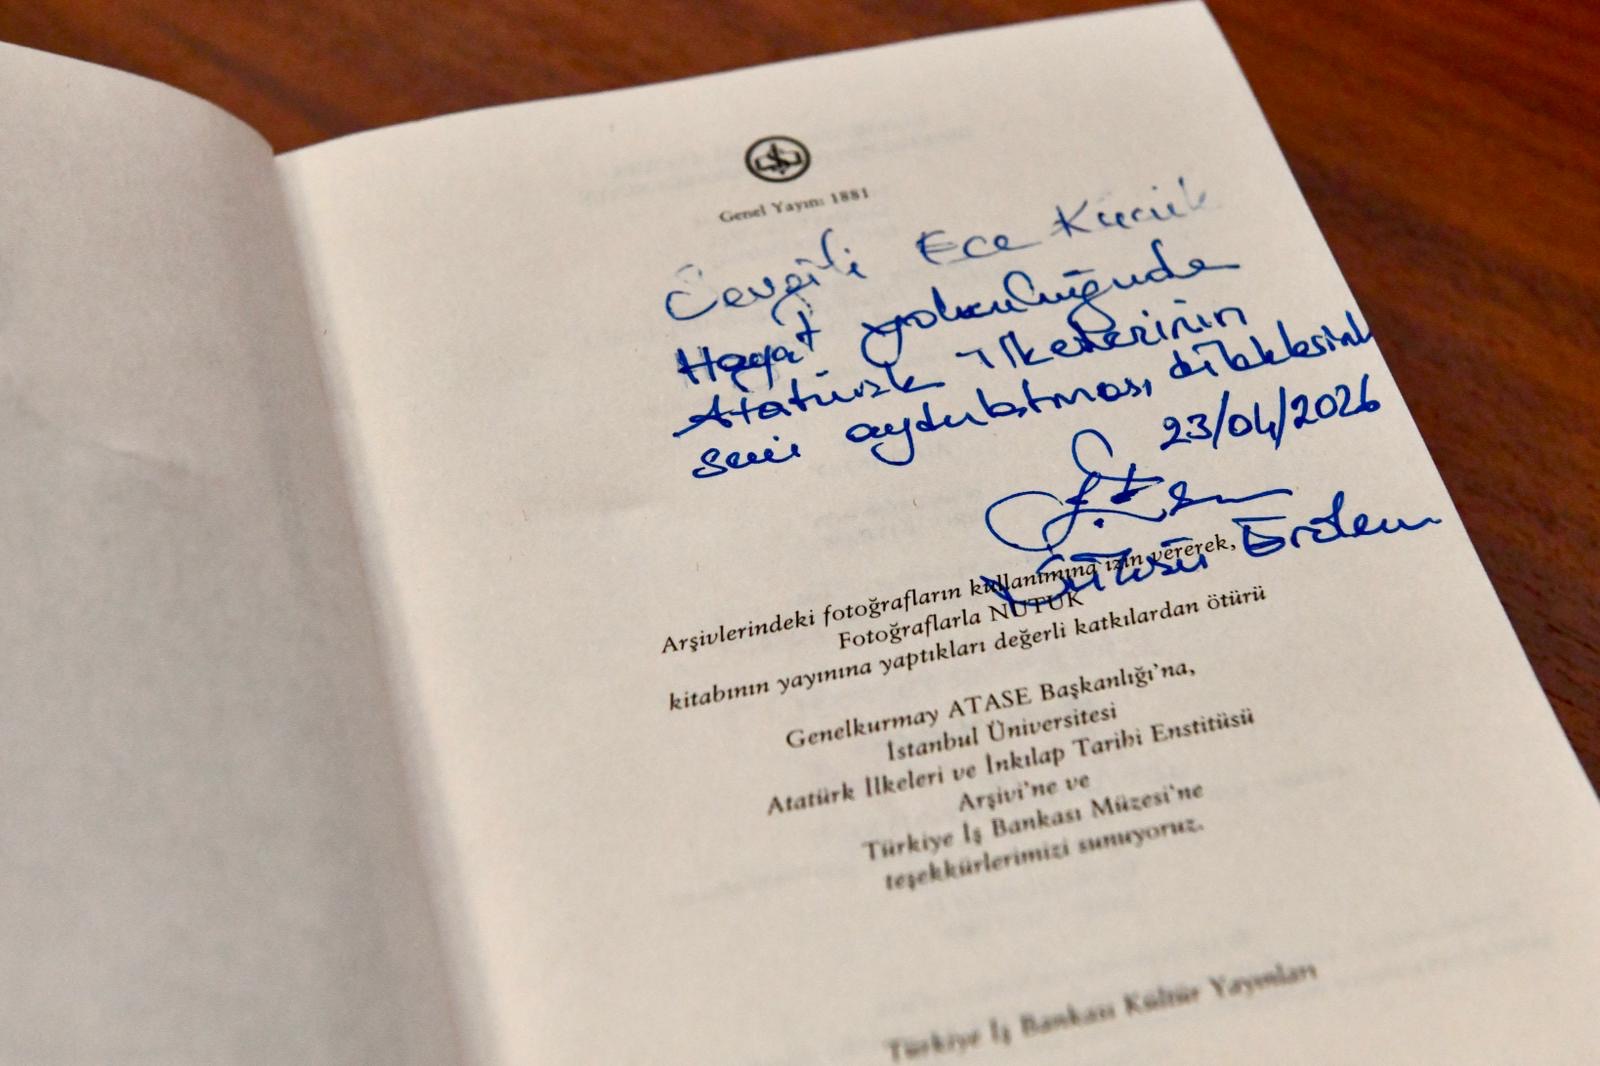 Genel Yayın: 1881
Sevgili Ece Küçük
Hayat yolculuğunda
Atatürk ilkelerinin
seni aydınlatması dileklerimle
23/04/2026
Erdem
Arşivlerindeki fotoğrafların kullanımına izin vererek,
Fotoğraflarla NUTUK
kitabının yayınına yaptıkları değerli katkılardan ötürü
Genelkurmay ATASE Başkanlığı'na,
İstanbul Üniversitesi
Atatürk İlkeleri ve İnkılap Tarihi Enstitüsü
Arşivi'ne ve
Türkiye İş Bankası Müzesi'ne
teşekkürlerimizi sunuyoruz.
Türkiye İş Bankası Kültür Yayınları